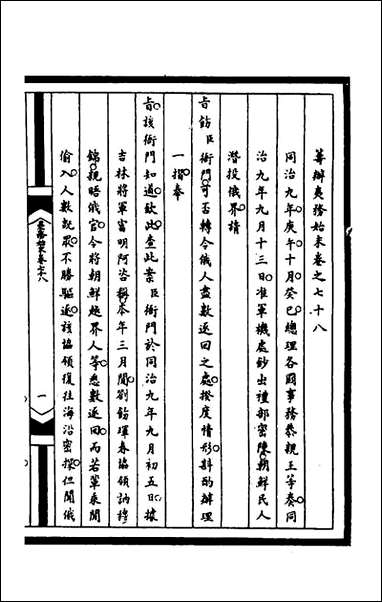 籌辦夷務始末卷之七十八
同治九年庚午十月癸巳總理各國事務恭親王等奏同
治九年九月十三日准軍機處鈔出禮部密陳朝鮮民人
潛投俄界情
旨飭臣衙門可否轉令俄人盡數逐回之處揆度情形斟酌辦理
一摺奉
旨該衙門知道欽此查此案臣衙門於同治九年九月初五日據
吉林將軍富明阿咨稱本年三月間劄飭琿春協領訥穆
錦親晤俄官令將朝鮮越界人等悉數逐回而若輩乘間
偷入人數既眾不勝驅逐該協領復往海沿密探但聞俄
卷七十八
一